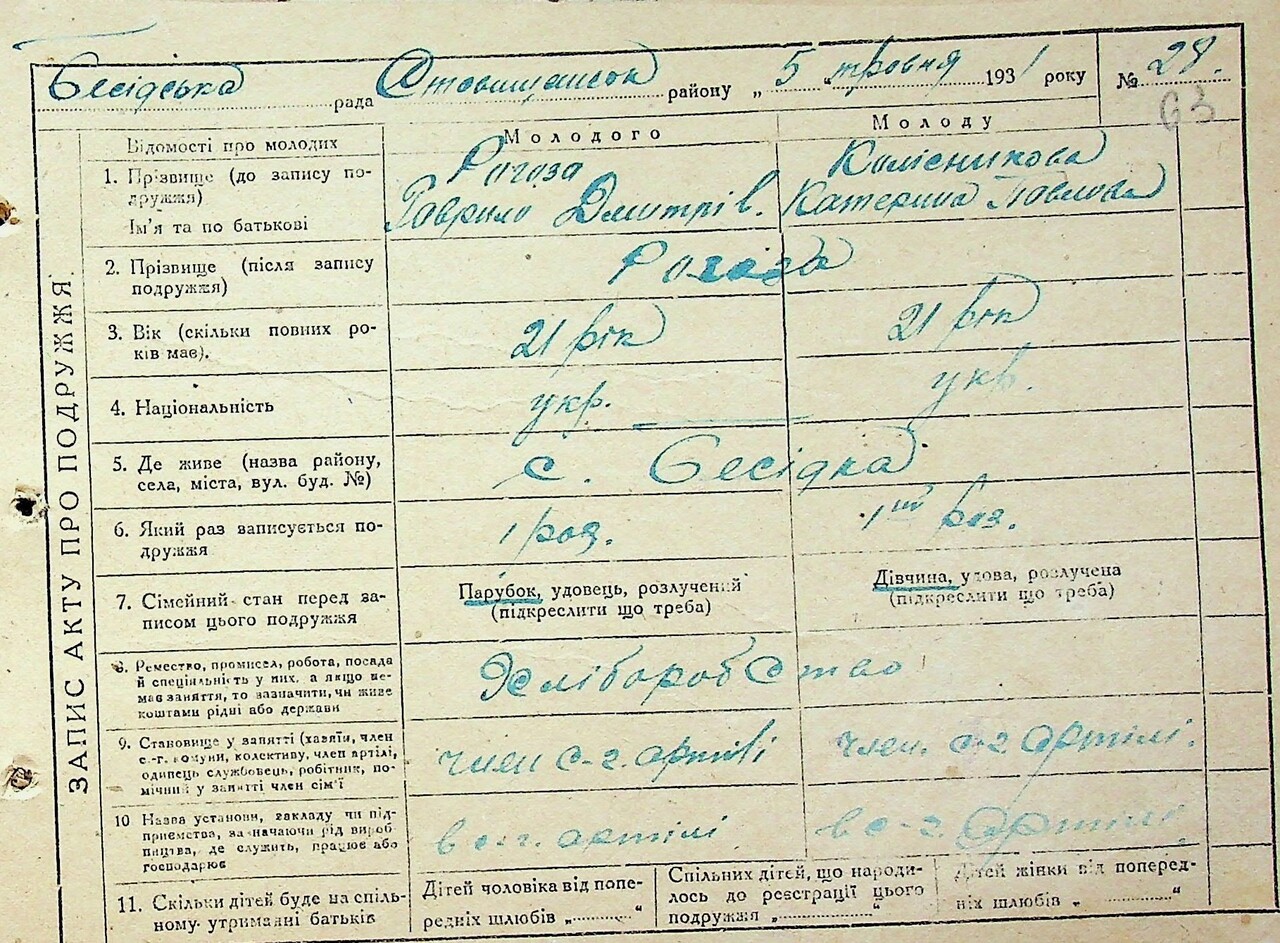 Бесідська рада Ставищанськ району „ 5 " травня 1931 року № 28.
63
ЗАПИС АКТУ ПРО ПОДРУЖЖЯ
Відомості про молодих
Молодого
Молоду
1. Прізвище (до запису по-
дружжя)
Ім'я та по батькові
Рогоза
Гаврило Дмитрів.
Колісникова
Катерина Павлова
2. Прізвище (після запису
подружжя)
Рогоза
3. Вік (скільки повних ро-
ків має).
21 рік
21 рік
4. Національність
укр.
укр.
5. Де живе (назва району,
села, міста, вул. буд. №)
с. Бесідка
6. Який раз записується по-
дружжя
1 раз.
1ий раз.
7. Сімейний стан перед за-
писом цього подружжя
Парубок, удовець, розлучений
(підкреслити що треба)
Дівчина, удова, розлучена
(підкреслити що треба)
8. Ремество, промисел, робота, посада
й спеціяльність у них, а якщо не-
має заняття, то зазначити, чи живе
коштами рідні або держави
Хліборобство
9. Становище у занятті (хазяїн, член
с.-г. комуни, колективу, член артілі,
одинець службовець, робітник, по-
мічний у занятті член сім'ї
член с-г. артілі
член. с-г артілі.
10 Назва установи, закладу чи під-
приємства, зазначаючи рід вироб-
ництва, де служить, працює або
господарює
в с-г. артілі
в с-г. Артілі
11. Скільки дітей буде на спіль-
ному утриманні батьків
Дітей чоловіка від попе-
редніх шлюбів „ "
Спільних дітей, що народи-
лось до реєстрації цього
подружжя „ "
Дітей жінки від поперед-
ніх шлюбів „ "